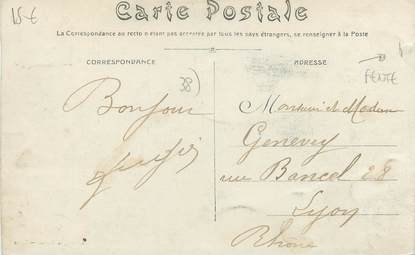 15 €
Carte Postale
La Correspondance au recto n'étant pas acceptée par tous les pays étrangers, se renseigner à la Poste
CORRESPONDANCE
ADRESSE
38)
FENTE
Bonjour
Monsieur et Madame
Genevey
rue Bancel 28
Lyon
Rhône